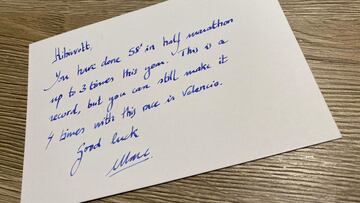 Hibiwott,
You have done 58' in half marathon
up to 3 times this year. This is a
record, but you can still make it
4 times with this race is Valencia.
Good luck
Marc